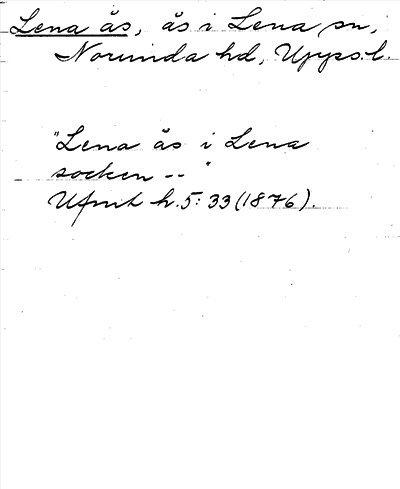 Lena ås, ås i Lena sn,
Norunda hd, Upps. l.
"Lena ås i Lena
socken -- "
Ufmt h.5: 33 (1876).